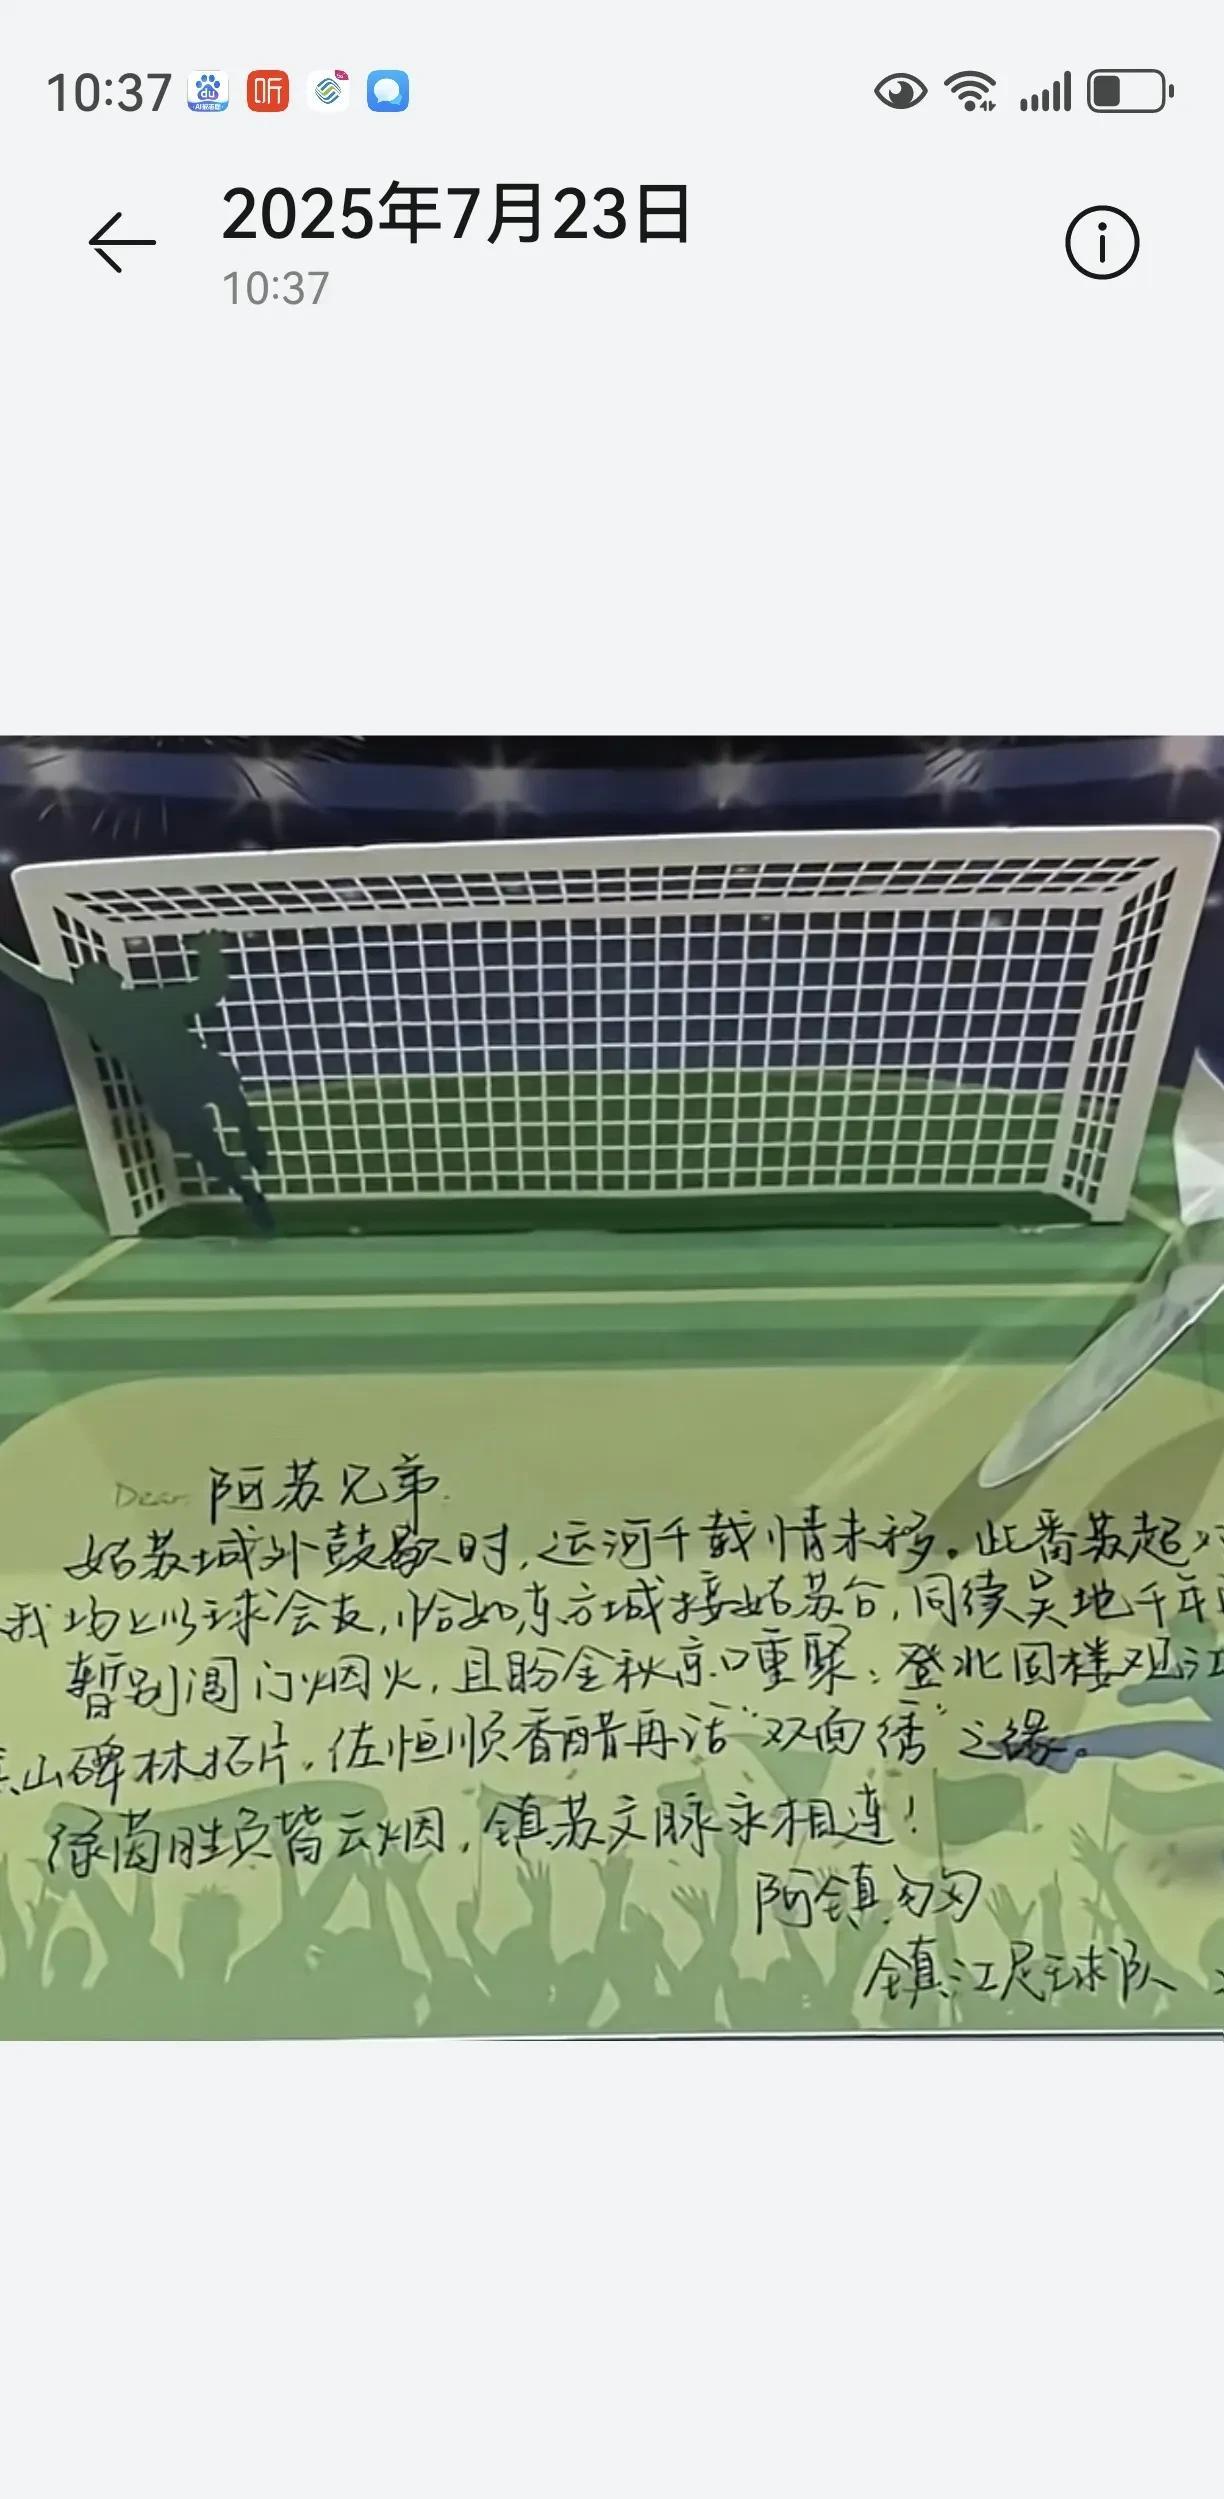 10:37
2025年7月23日
10:37
Dear 阿苏兄弟
姑苏城外鼓歇时,运河千载情未移。此番苏超
我场上以球会友,恰如东方城接姑苏台,同续吴地千年
暂别阊门烟火,且盼金秋京口重聚:登北固楼观江
山碑林拓片,佐恒顺香醋再话"双面绣"之缘。
绿茵胜负皆云烟,镇苏文脉永相连!
阿镇匆匆
镇江足球队